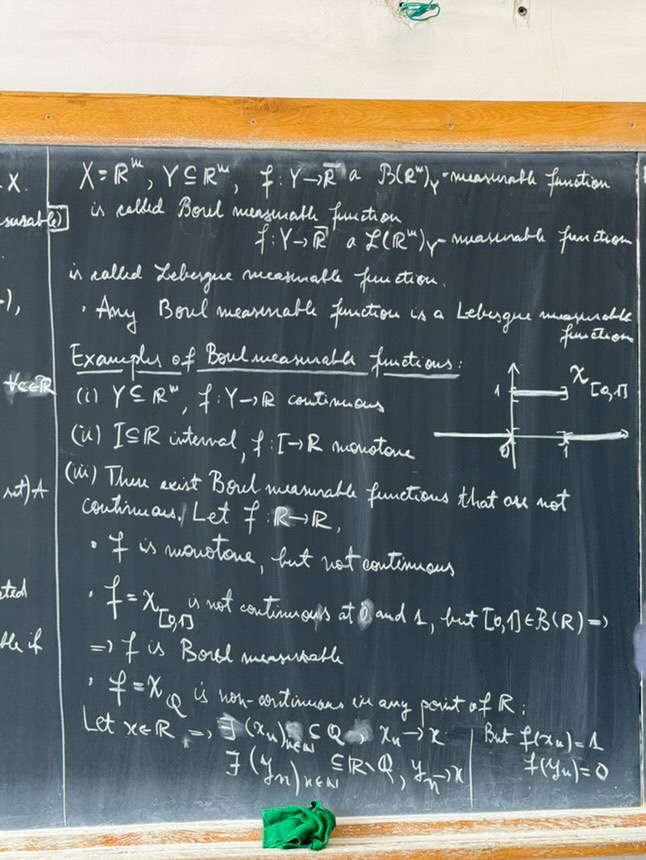 X.
surable)
),
∀c∈ℝ
set) A
ted
ble if
X = ℝᵐ, Y ⊆ ℝᵐ, f : Y → ℝ̅ a B(ℝᵐ)_Y - measurable function
is called Borel measurable function
f : Y → ℝ̅ a L(ℝᵐ)_Y - measurable function
is called Lebesgue measurable function.
· Any Borel measurable function is a Lebesgue measurable
function
Examples of Borel measurable functions:
(i) Y ⊆ ℝᵐ, f : Y → ℝ continuous
(ii) I ⊆ ℝ interval, f : I → ℝ monotone
1 χ_[0,1]
0 1
(iii) There exist Borel measurable functions that are not
continuous. Let f : ℝ → ℝ,
· f is monotone, but not continuous
· f = χ_[0,1] is not continuous at 0 and 1, but [0,1] ∈ B(ℝ) =>
=> f is Borel measurable
· f = χ_Q is non-continuous in any point of ℝ:
Let x ∈ ℝ => ∃ (xₙ)_{n∈ℕ} ⊆ Q, xₙ → x | But f(xₙ) = 1
∃ (yₙ)_{n∈ℕ} ⊆ ℝ \ Q, yₙ → x | f(yₙ) = 0